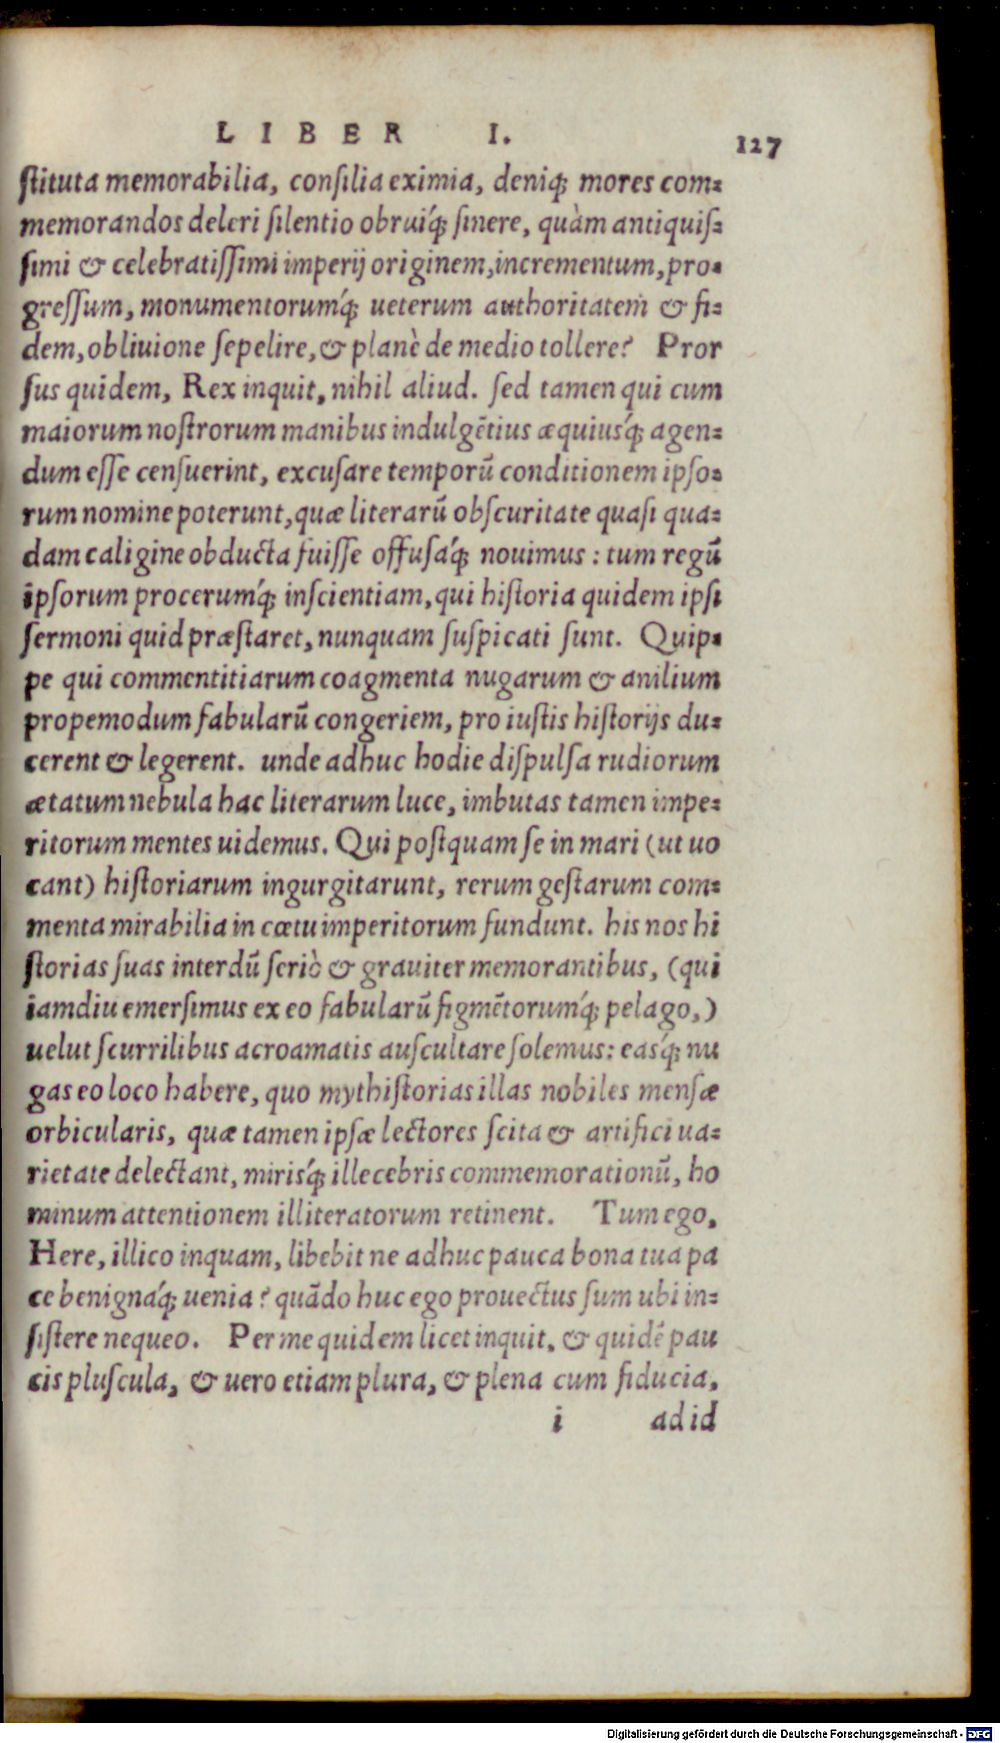 LIBER I. 127
ſtituta memorabilia, conſilia eximia, deniq; mores com-
memorandos deleri ſilentio obruiq́; ſinere, quàm antiquiſ-
ſimi & celebratiſſimi imperij originem, incrementum, pro-
greſſum, monumentorumq́; ueterum authoritatem & fi-
dem, obliuione ſepelire, & planè de medio tollere? Pror
ſus quidem, Rex inquit, nihil aliud. ſed tamen qui cum
maiorum noſtrorum manibus indulgẽtius æquiusq́; agen-
dum eſſe cenſuerint, excuſare temporũ conditionem ipſo-
rum nomine poterunt, quæ literarũ obſcuritate quaſi qua-
dam caligine obducta fuiſſe offuſaq́; nouimus: tum regũ
ipſorum procerumq́; inſcientiam, qui hiſtoria quidem ipſi
ſermoni quid præſtaret, nunquam ſuſpicati ſunt. Quip-
pe qui commentitiarum coagmenta nugarum & anilium
propemodum fabularũ congeriem, pro iuſtis hiſtorijs du-
cerent & legerent. unde adhuc hodie diſpulſa rudiorum
ætatum nebula hac literarum luce, imbutas tamen impe-
ritorum mentes uidemus. Qui poſtquam ſe in mari (ut uo
cant) hiſtoriarum ingurgitarunt, rerum geſtarum com-
menta mirabilia in cœtu imperitorum fundunt. his nos hi
ſtorias ſuas interdũ ſeriò & grauiter memorantibus, (qui
iamdiu emerſimus ex eo fabularũ figmẽtorumq́; pelago,)
uelut ſcurrilibus acroamatis auſcultare ſolemus: easq́; nu
gas eo loco habere, quo mythiſtorias illas nobiles menſæ
orbicularis, quæ tamen ipſæ lectores ſcita & artifici ua-
rietate delectant, mirisq́; illecebris commemorationũ, ho
minum attentionem illiteratorum retinent. Tum ego,
Here, illico inquam, libebit ne adhuc pauca bona tua pa
ce benignaq́; uenia? quãdo huc ego prouectus ſum ubi in-
ſiſtere nequeo. Per me quidem licet inquit, & quidẽ pau
cis pluſcula, & uero etiam plura, & plena cum fiducia,
i ad id
Digitalisierung gefördert durch die Deutsche Forschungsgemeinschaft - DFG